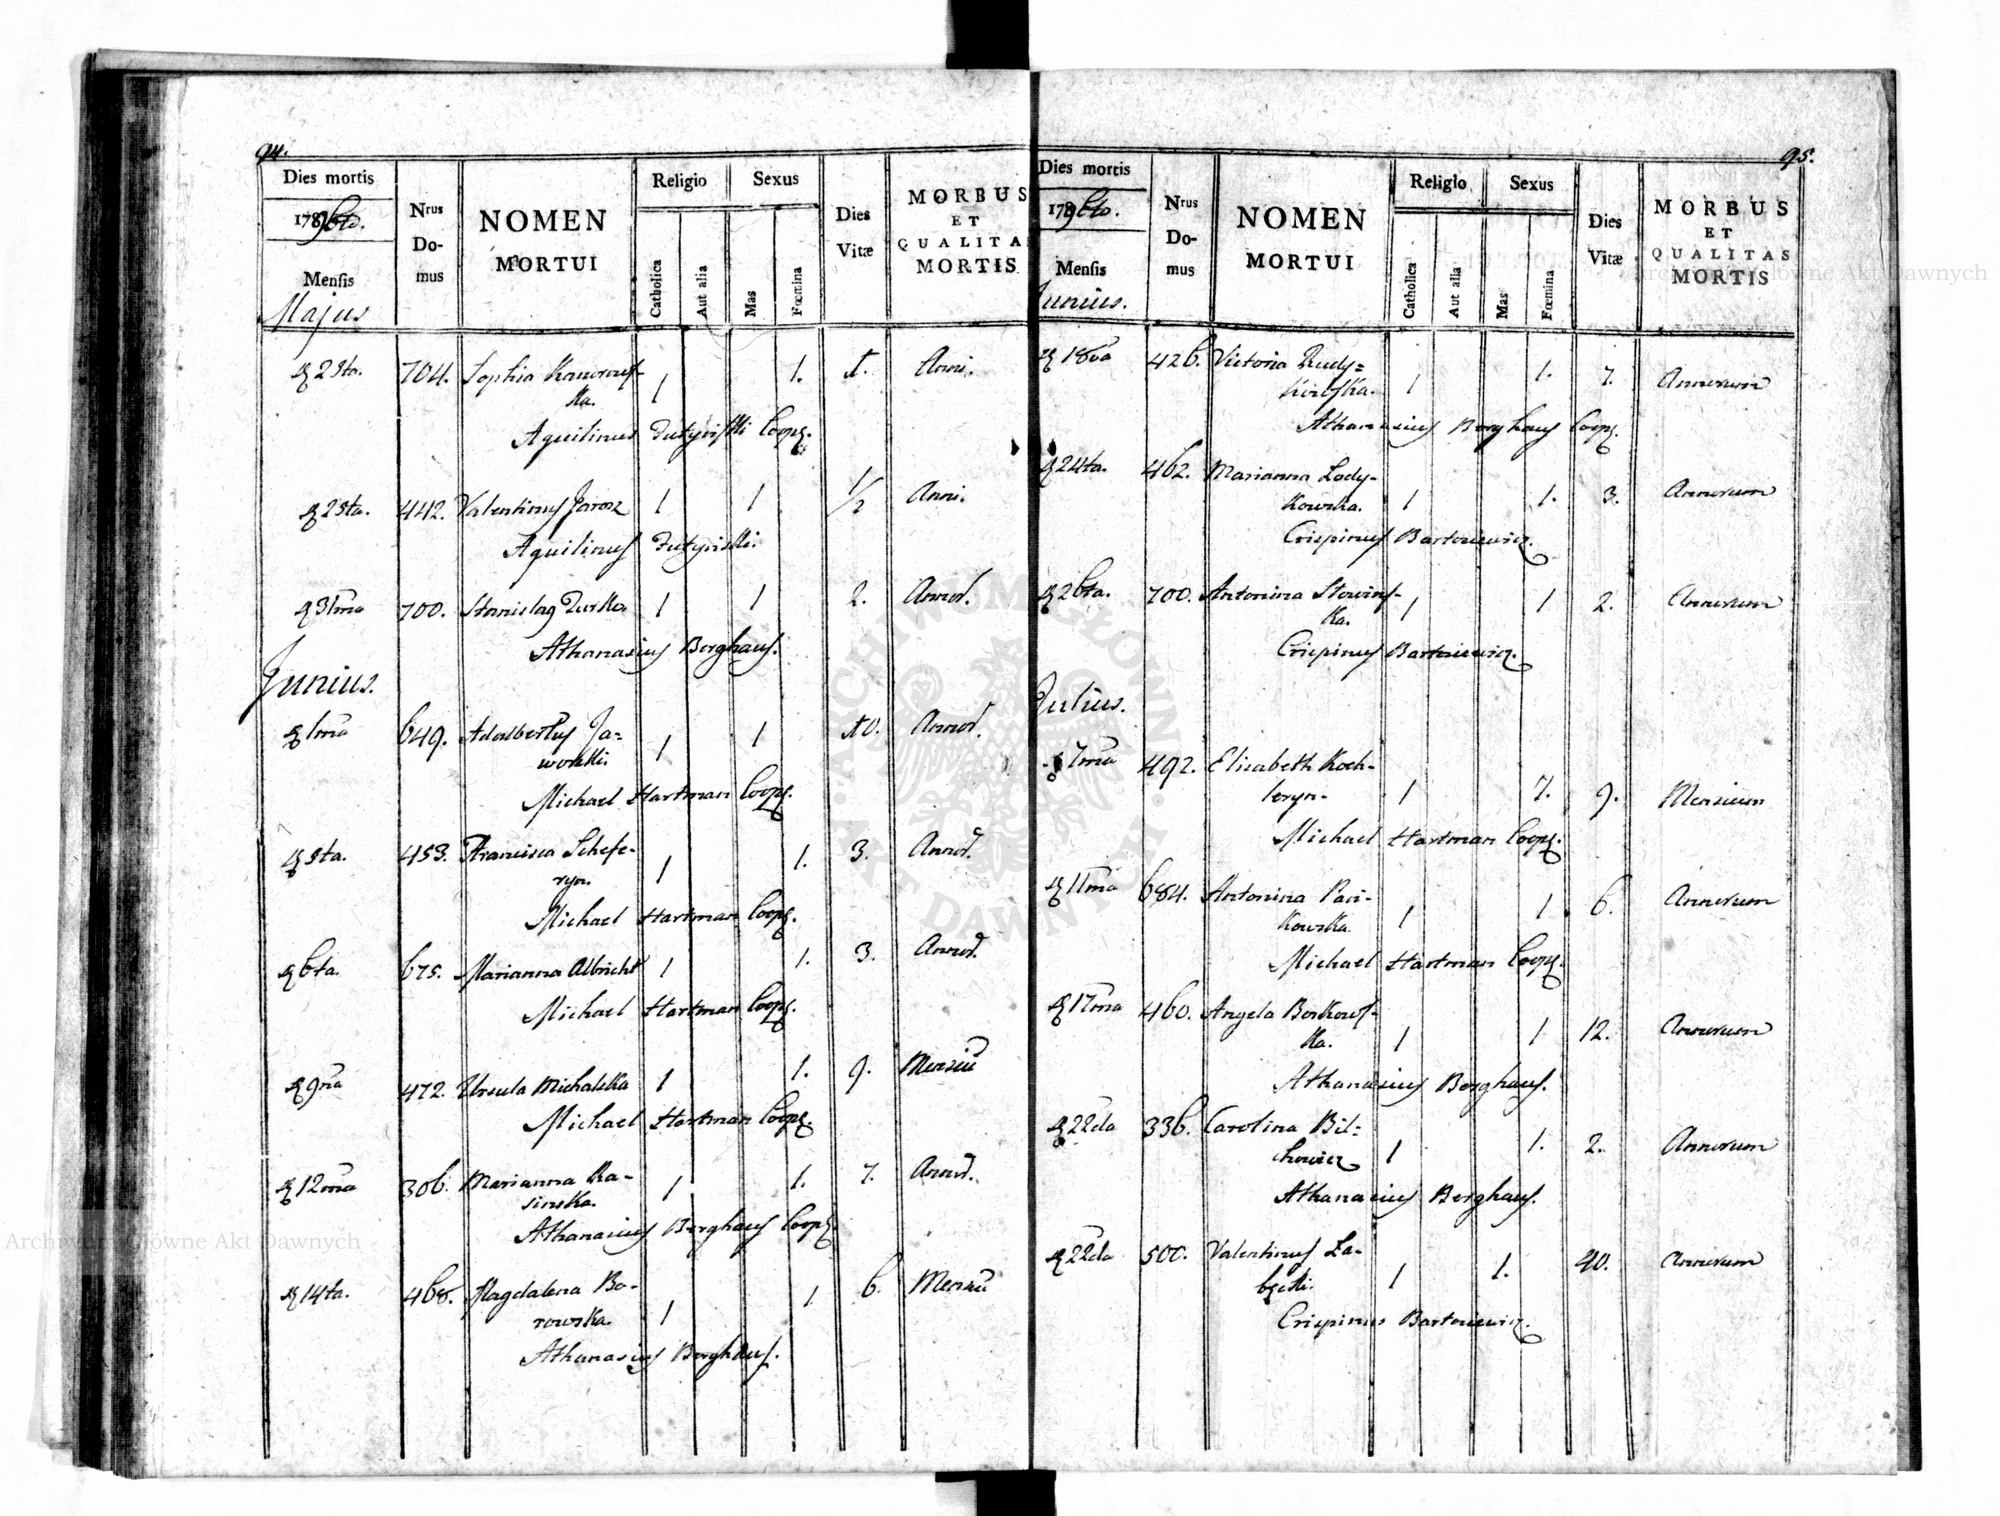 94.
Dies mortis
Nrus Do- mus
NOMEN MORTUI
Religio
Sexus
Dies Vitæ
MORBUS ET QUALITAS MORTIS
1796to.
Mensis
Majus
Catholica
Aut alia
Mas
Fœmina
25ta. 704. Sophia 1 1. 1. Anni.
ka.
Aquilinus Coop.
25ta. 442. Valentinus Jarosz 1 1 1/2 Anni.
Aquilinus
31ma 700. Stanislaus Turka 1 1 2. Annor.
Athanasius Berghaus.
Junius.
1ma 649. Adalbertus Ja- 1 1 10. Annor.
worski.
Michael Hartman Coop.
5ta. 453. Francisca Schefe- 1 1. 3. Annor.
ryn.
Michael Hartman Coop.
6ta. 675. Marianna Albricht 1 1. 3. Annor.
Michael Hartman Coop.
9na 472. Ursula Michalska 1 1. 9. Mensiu
Michael Hartman Coop.
12ma 306. Marianna Ka- 1 1. 7. Annor.
sinska.
Athanasius Berghaus Coop.
14ta. 468. Magdalena Bo- 1 1 6. Mensiu
rowska.
Athanasius Berghaus.
95.
Dies mortis
Nrus Do- mus
NOMEN MORTUI
Religio
Sexus
Dies Vitæ
MORBUS ET QUALITAS MORTIS
1796to.
Mensis
Junius.
Catholica
Aut alia
Mas
Fœmina
18va 426. Victoria Rudy= 1 1. 7. Annorum
Athanasius Berghaus Coop.
24ta. 462. Marianna Lody- 1 1. 3. Annorum
kowska.
Crispinus Bartosiewicz.
26ta. 700. Antonina Slowins- 1 1 2. Annorum
ka.
Crispinus Bartosiewicz.
Julius.
7ma 492. Elisabeth Koch- 1 1. 9. Mensium
leryn.
Michael Hartman Coop.
11ma 684. Antonina Pan- 1 1 6. Annorum
kowska.
Michael Hartman Coop.
17ma 460. Angela Borkows- 1 1 12. Annorum
ka.
Athanasius Berghaus.
22da 336. Carolina Bil= 1 1. 2. Annorum
howicz
Athanasius Berghaus.
22da 500. Valentinus La- 1 1. 40. Annorum
Crispinus Bartosiewicz.
Archiwum Główne Akt Dawnych
Archiwum Główne Akt Dawnych
ARCHIWUM GŁÓWNE AKT DAWNYCH